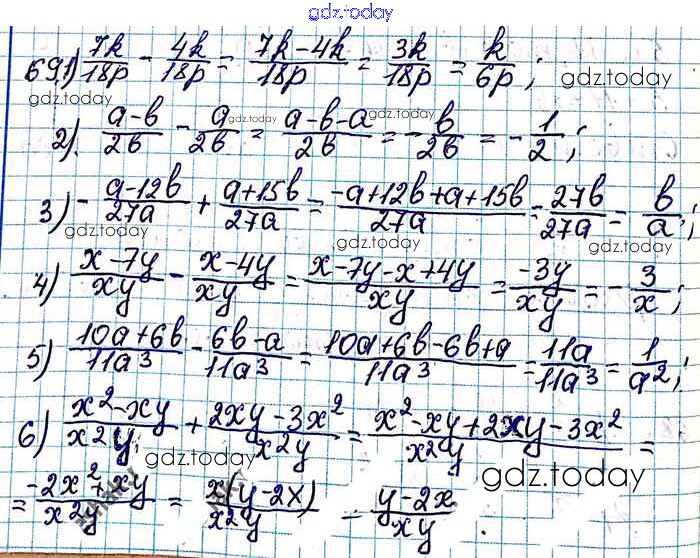 gdz.today
69.1) 7k/18p - 4k/18p = 7k-4k/18p = 3k/18p = k/6p;
gdz.today
gdz.today
2). a-b/2b - a/2b = a-b-a/2b = -b/2b = -1/2;
gdz.today
3) -a-12b/27a + a+15b/27a = -a+12b+a+15b/27a = 27b/27a = b/a;
gdz.today
gdz.today
gdz.today
4) x-7y/xy - x-4y/xy = x-7y-x+4y/xy = -3y/xy = -3/x;
5) 10a+6b/11a³ - 6b-a/11a³ = 10a+6b-6b+a/11a³ = 11a/11a³ = 1/a²;
6) x²-xy/x²y + 2xy-3x²/x²y = x²-xy+2xy-3x²/x²y =
gdz.today
gdz.today
= -2x²+xy/x²y = x(y-2x)/x²y = y-2x/xy.